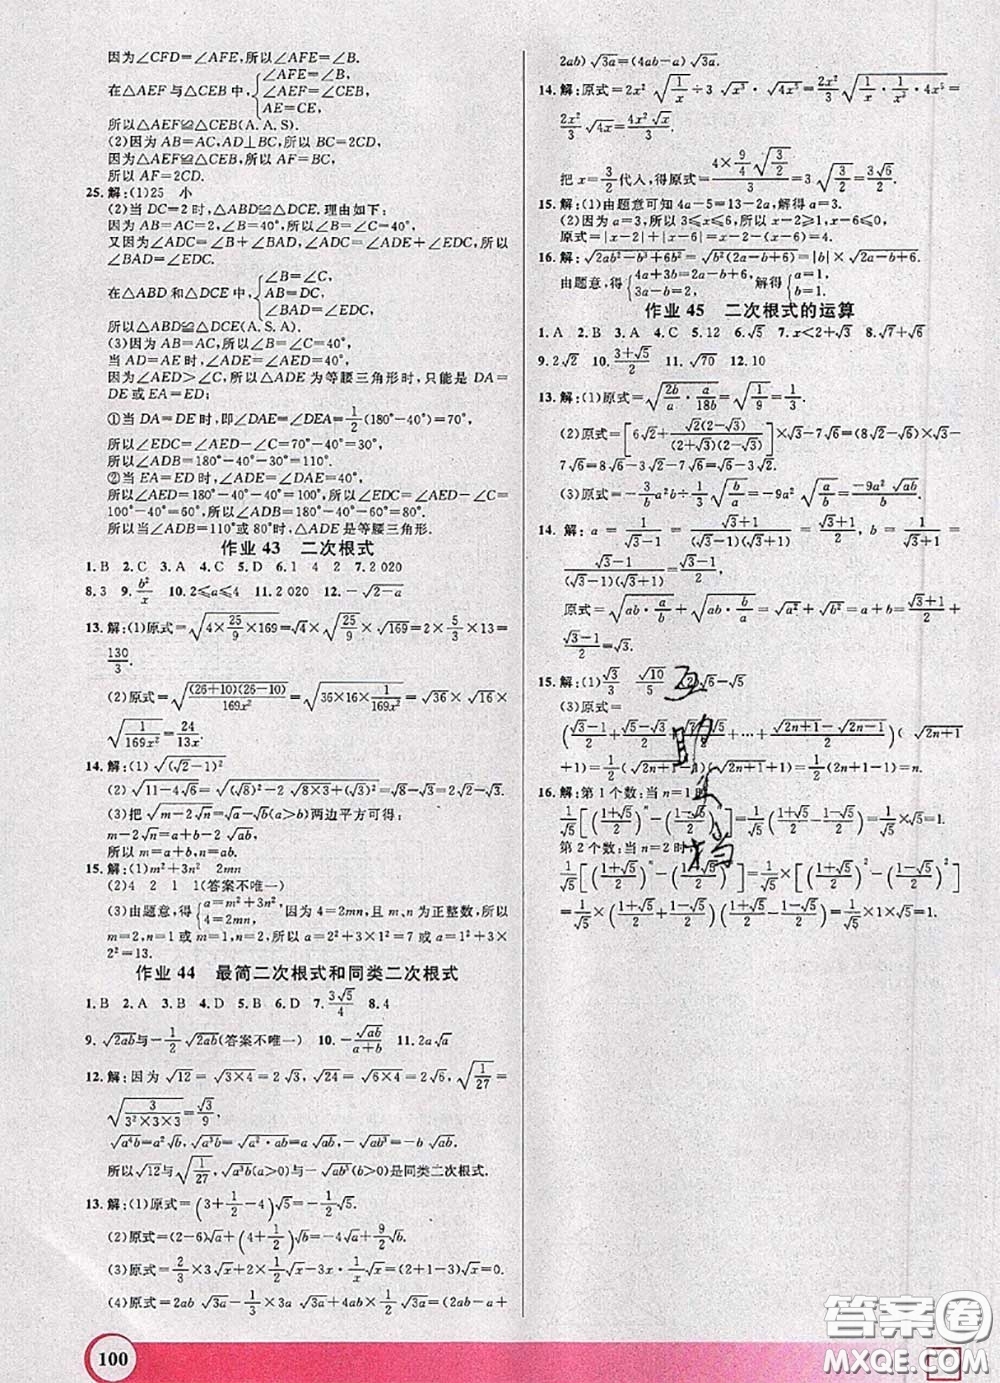 因为∠CFD=∠AFE,所以∠AFE=∠B.
在△AEF与△CEB中,{∠AFE=∠B, ∠AEF=∠CEB, AE=CE,
所以△AEF≌△CEB(A.A.S).
(2)因为AB=AC,AD⊥BC,所以BC=2CD.
因为△AEF≌△CEB,所以AF=BC.
所以AF=2CD.
25.解:(1)25 小
(2)当DC=2时,△ABD≌△DCE.理由如下:
因为AB=AC=2,∠B=40°,所以∠C=∠B=40°.
又因为∠ADC=∠B+∠BAD,∠ADC=∠ADE+∠EDC,所以∠BAD=∠EDC.
在△ABD和△DCE中,{∠B=∠C, AB=DC, ∠BAD=∠EDC,
所以△ABD≌△DCE(A.S.A).
(3)因为AB=AC,所以∠B=∠C=40°.
当AD=AE时,∠ADE=∠AED=40°.
因为∠AED>∠C,所以△ADE为等腰三角形时,只能是DA=
DE或AE=ED;
①当DA=DE时,即∠DAE=∠DEA=1/2(180°-40°)=70°,
所以∠EDC=∠AED-∠C=70°-40°=30°.
所以∠ADB=180°-40°-30°=110°;
②当EA=ED时,∠ADE=∠DAE=40°,
所以∠AED=180°-40°-40°=100°,所以∠EDC=∠AED-∠C=
100°-40°=60°,所以∠ADB=180°-40°-60°=80°.
所以当∠ADB=110°或80°时,△ADE是等腰三角形.
作业43 二次根式
1.B 2.C 3.A 4.C 5.D 6.1 4 2 7.2 020
8.3 9.b²/x 10.2≤a≤4 11.2 020 12.-√(2-a)
13.解:(1)原式=√(4×25/9×169)=√4×√(25/9)×√169=2×5/3×13=
130/3.
(2)原式=√((26+10)(26-10)/169x²)=√(36×16×1/169x²)=√36×√16×
√(1/169x²)=24/13x.
14.解:(1)√((√2-1)²)
(2)√(11-4√6)=√((√8)²-2√(8×3)+(√3)²)=√8-√3.
(3)把√(m-2√n)=√a-√b(a>b)两边平方可得:
m-2√n=a+b-2√ab.
所以m=a+b,n=ab.
15.解:(1)m²+3n² 2mn
(2)4 2 1 1(答案不唯一)
(3)由题意,得{a=m²+3n², 4=2mn, 因为4=2mn,且m、n为正整数,所以
m=2,n=1或m=1,n=2.所以a=2²+3×1²=7或a=1²+3×
2²=13.
作业44 最简二次根式和同类二次根式
1.B 2.A 3.B 4.C 5.D 6.D 7.3√5/4 8.4
9.√2ab与-1/2√2ab(答案不唯一) 10.-√ab/(a+b) 11.2a√a
12.解:因为√12=√(3×4)=2√3,√24=√(6×4)=2√6,√(1/27)=
√(3/(3²×3×3))=√3/9,
√(a⁴b)=a²√b,√(a³b)=√(a²·ab)=a√ab,-√(ab³)=-b√ab,
所以√12与√(1/27),√(a³b)(a>0)与-√(ab³)(b>0)是同类二次根式.
13.解:(1)原式=(3+1/2-4)√5=-1/2√5.
(2)原式=(2-6)√a+(4+1/2)√b=-4√a+9/2√b.
(3)原式=2/3×3√x+2x·1/x√x-3x·1/x√x=(2+1-3)√x=0.
(4)原式=2ab√3a-1/6×3a√3a+4ab×1/2√3a=(2ab-a+
2ab)√3a=(4ab-a)√3a.
14.解:原式=2x²√(1/x)÷3√x³·√4x⁵=2x²/3√(1/x·1/x³·4x⁵)=
2x²/3√4x=4x²√x/3.
把x=3/2代入,得原式=(4×9/4√(3/2))/3=3√(3/2)=3√6/2.
15.解:(1)由题意可知4a-5=13-2a,解得a=3.
(2)因为a=3,所以3≤x≤6,所以x-2>0,x-6≤0,
原式=|x-2|+|x-6|=x-2+6-x=4.
16.解:√(2ab²-b³+6b²)=√(b²(2a-b+6))=|b|×√(2a-b+6).
由题意,得{4a+3b=2a-b+6, 3a-b=2, 解得{a=1, b=1.
作业45 二次根式的运算
1.A 2.B 3.A 4.C 5.12 6.√5 7.x<2+√3 8.√7+√6
9.2√2 10.(3+√5)/2 11.√70 12.10
13.解:(1)原式=√(2b/a·a/18b)=√(1/9)=1/3.
(2)原式=[6√2+√2(2-√3)/((2+√3)(2-√3))]×√3-7√6=(8√2-√6)×√3-
7√6=8√6-3√2-7√6=√6-3√2.
(3)原式=-3/3a²b÷√(b/a)=-9a²√(a/b)=-9a²√ab/b.
14.解:a=1/(√3-1)=(√3+1)/((√3-1)(√3+1))=(√3+1)/2,b=1/(√3+1)=
(√3-1)/((√3-1)(√3+1))=(√3-1)/2.
原式=√(ab·a/b)+√(ab·b/a)=√a²+√b²=a+b=(√3+1)/2+
(√3-1)/2=√3.
15.解:(1)√3/3 √10/5 (2)√6-√5
(3)原式=
((√3-1)/2+(√5-√3)/2+(√7-√5)/2+…+(√(2n+1)-√(2n-1))/2)(√(2n
+1)+1)=1/2(√(2n+1)-1)(√(2n+1)+1)=1/2×2n=n.
16.解:第1个数:当n=1时,
1/√5[((1+√5)/2)ⁿ-((1-√5)/2)ⁿ]=1/√5((1+√5)/2-(1-√5)/2)=1/√5×√5=1.
第2个数:当n=2时,
1/√5[((1+√5)/2)ⁿ-((1-√5)/2)ⁿ]=1/√5×[((1+√5)/2)²-((1-√5)/2)²]
=1/√5×((1+√5)/2+(1-√5)/2)((1+√5)/2-(1-√5)/2)=1/√5×1×√5=1.
互助文档
100
答案圈
MXQE.COM